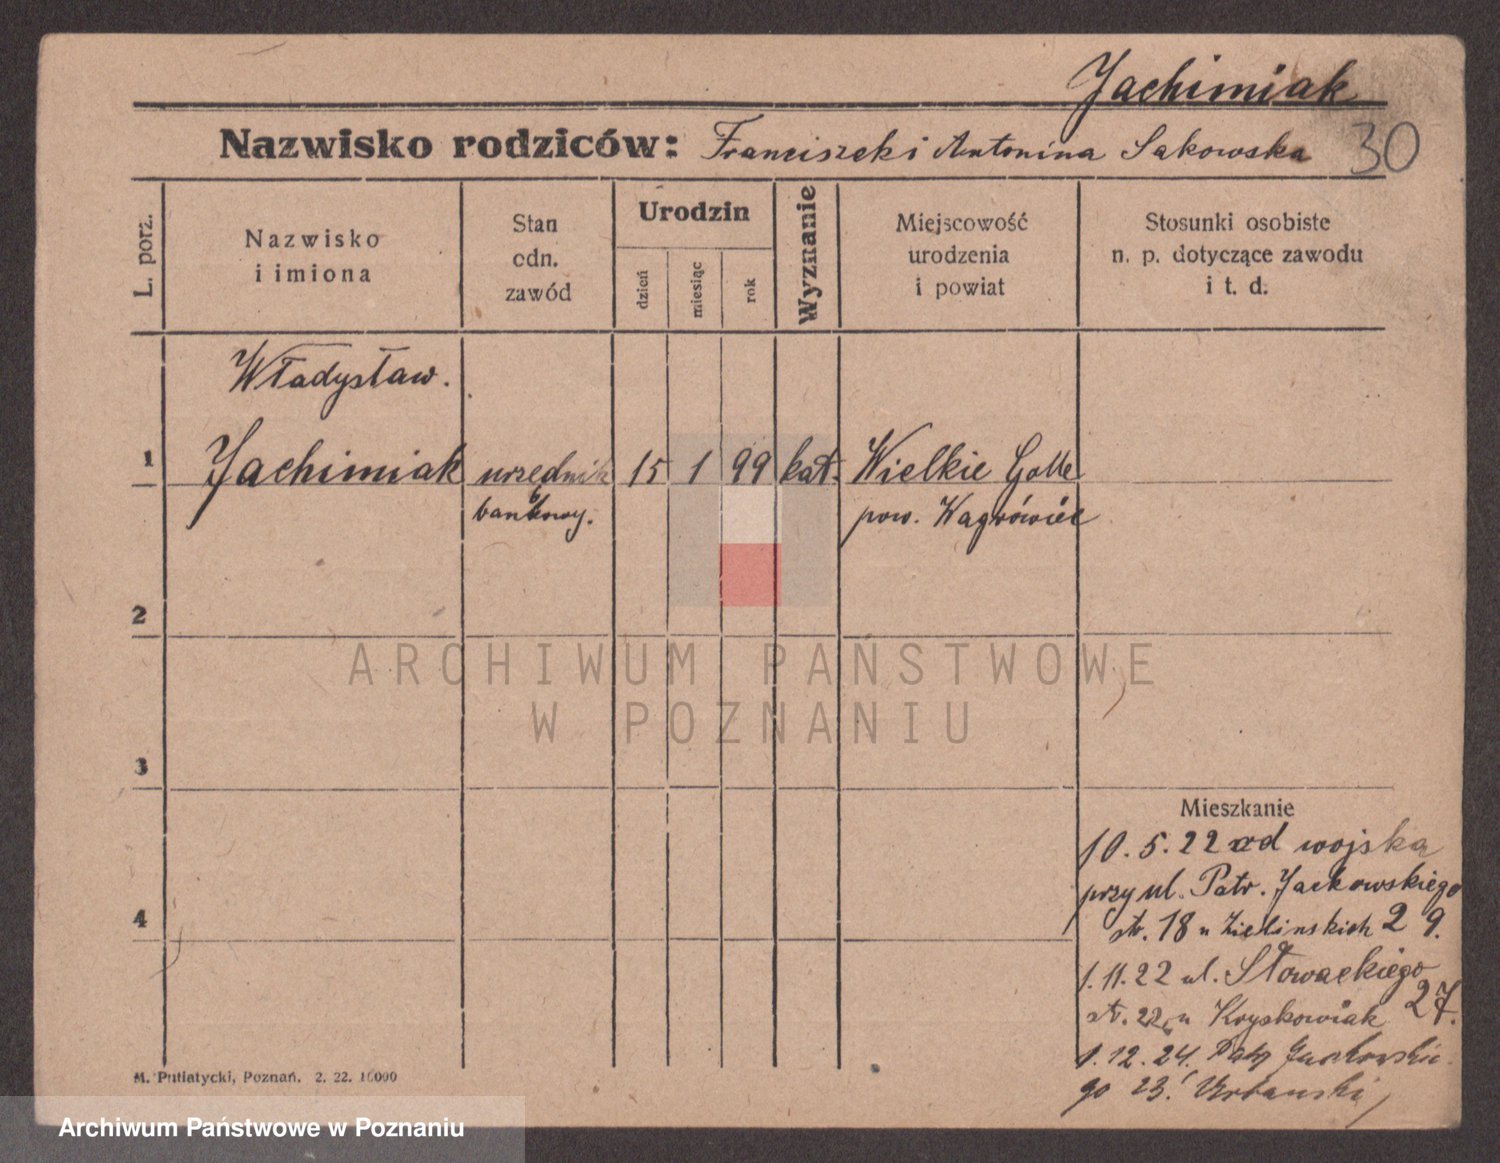 Jachimiak
Nazwisko rodziców: Franciszek i Antonina Sakowska 30
L. porz.
Nazwisko
i imiona
Stan
odn.
zawód
Urodzin
dzień
miesiąc
rok
Wyznanie
Miejscowość
urodzenia
i powiat
Stosunki osobiste
n. p. dotyczące zawodu
i t. d.
Władysław.
1 Jachimiak urzędnik 15 1 99 kat. Wielkie Golle
bankowy. pow. Wągrówiec
2
ARCHIWUM PAŃSTWOWE
W POZNANIU
3
Mieszkanie
10. 5. 22 od wojska
przy ul. Patr. Jackowskiego
4
str. 18 u Zielinskich 29.
1. 11. 22 ul. Słowackiego
str. 22, u Kryskowiak 27.
1. 12. 24. Patr Jackowskie-
go 23. Urbanski
M. Putiatycki, Poznań. 2. 22. 10000
Archiwum Państwowe w Poznaniu